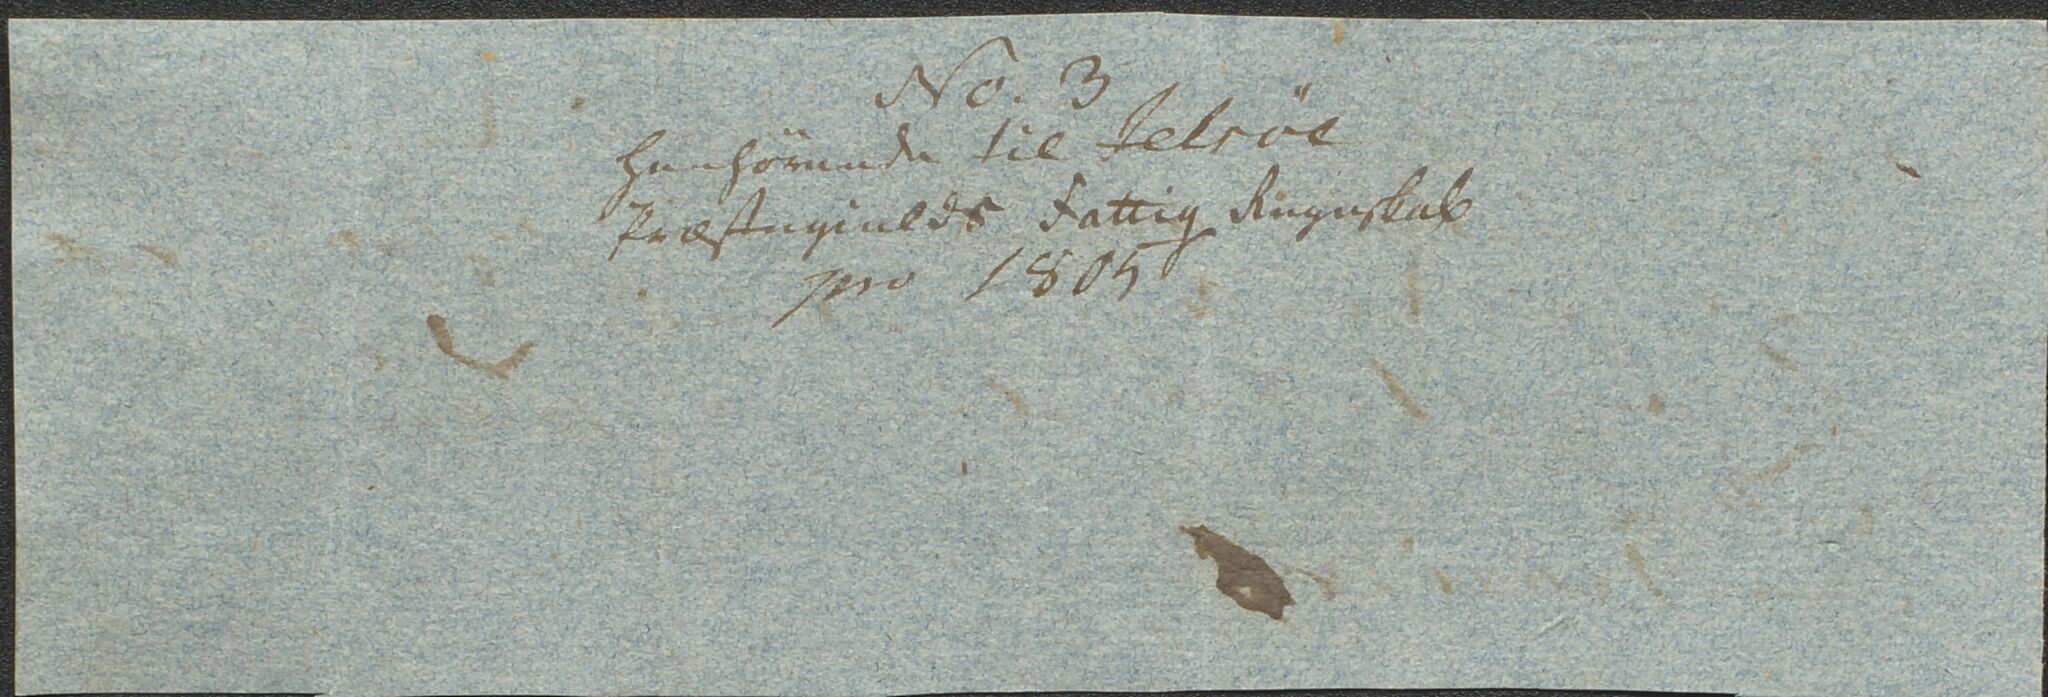 No. 3
Henhörende til Jelsöe
Præstegields Fattig Regnskab
pro 1805